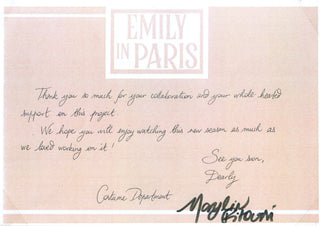 EMILY
IN PARIS
Thank you so much for your collaboration and your whole-hearted
support on this project
We hope you will enjoy watching this new season as much as
we loved working on it!
See you soon,
Dearly
Costume Department
Marylin
Fitoussi